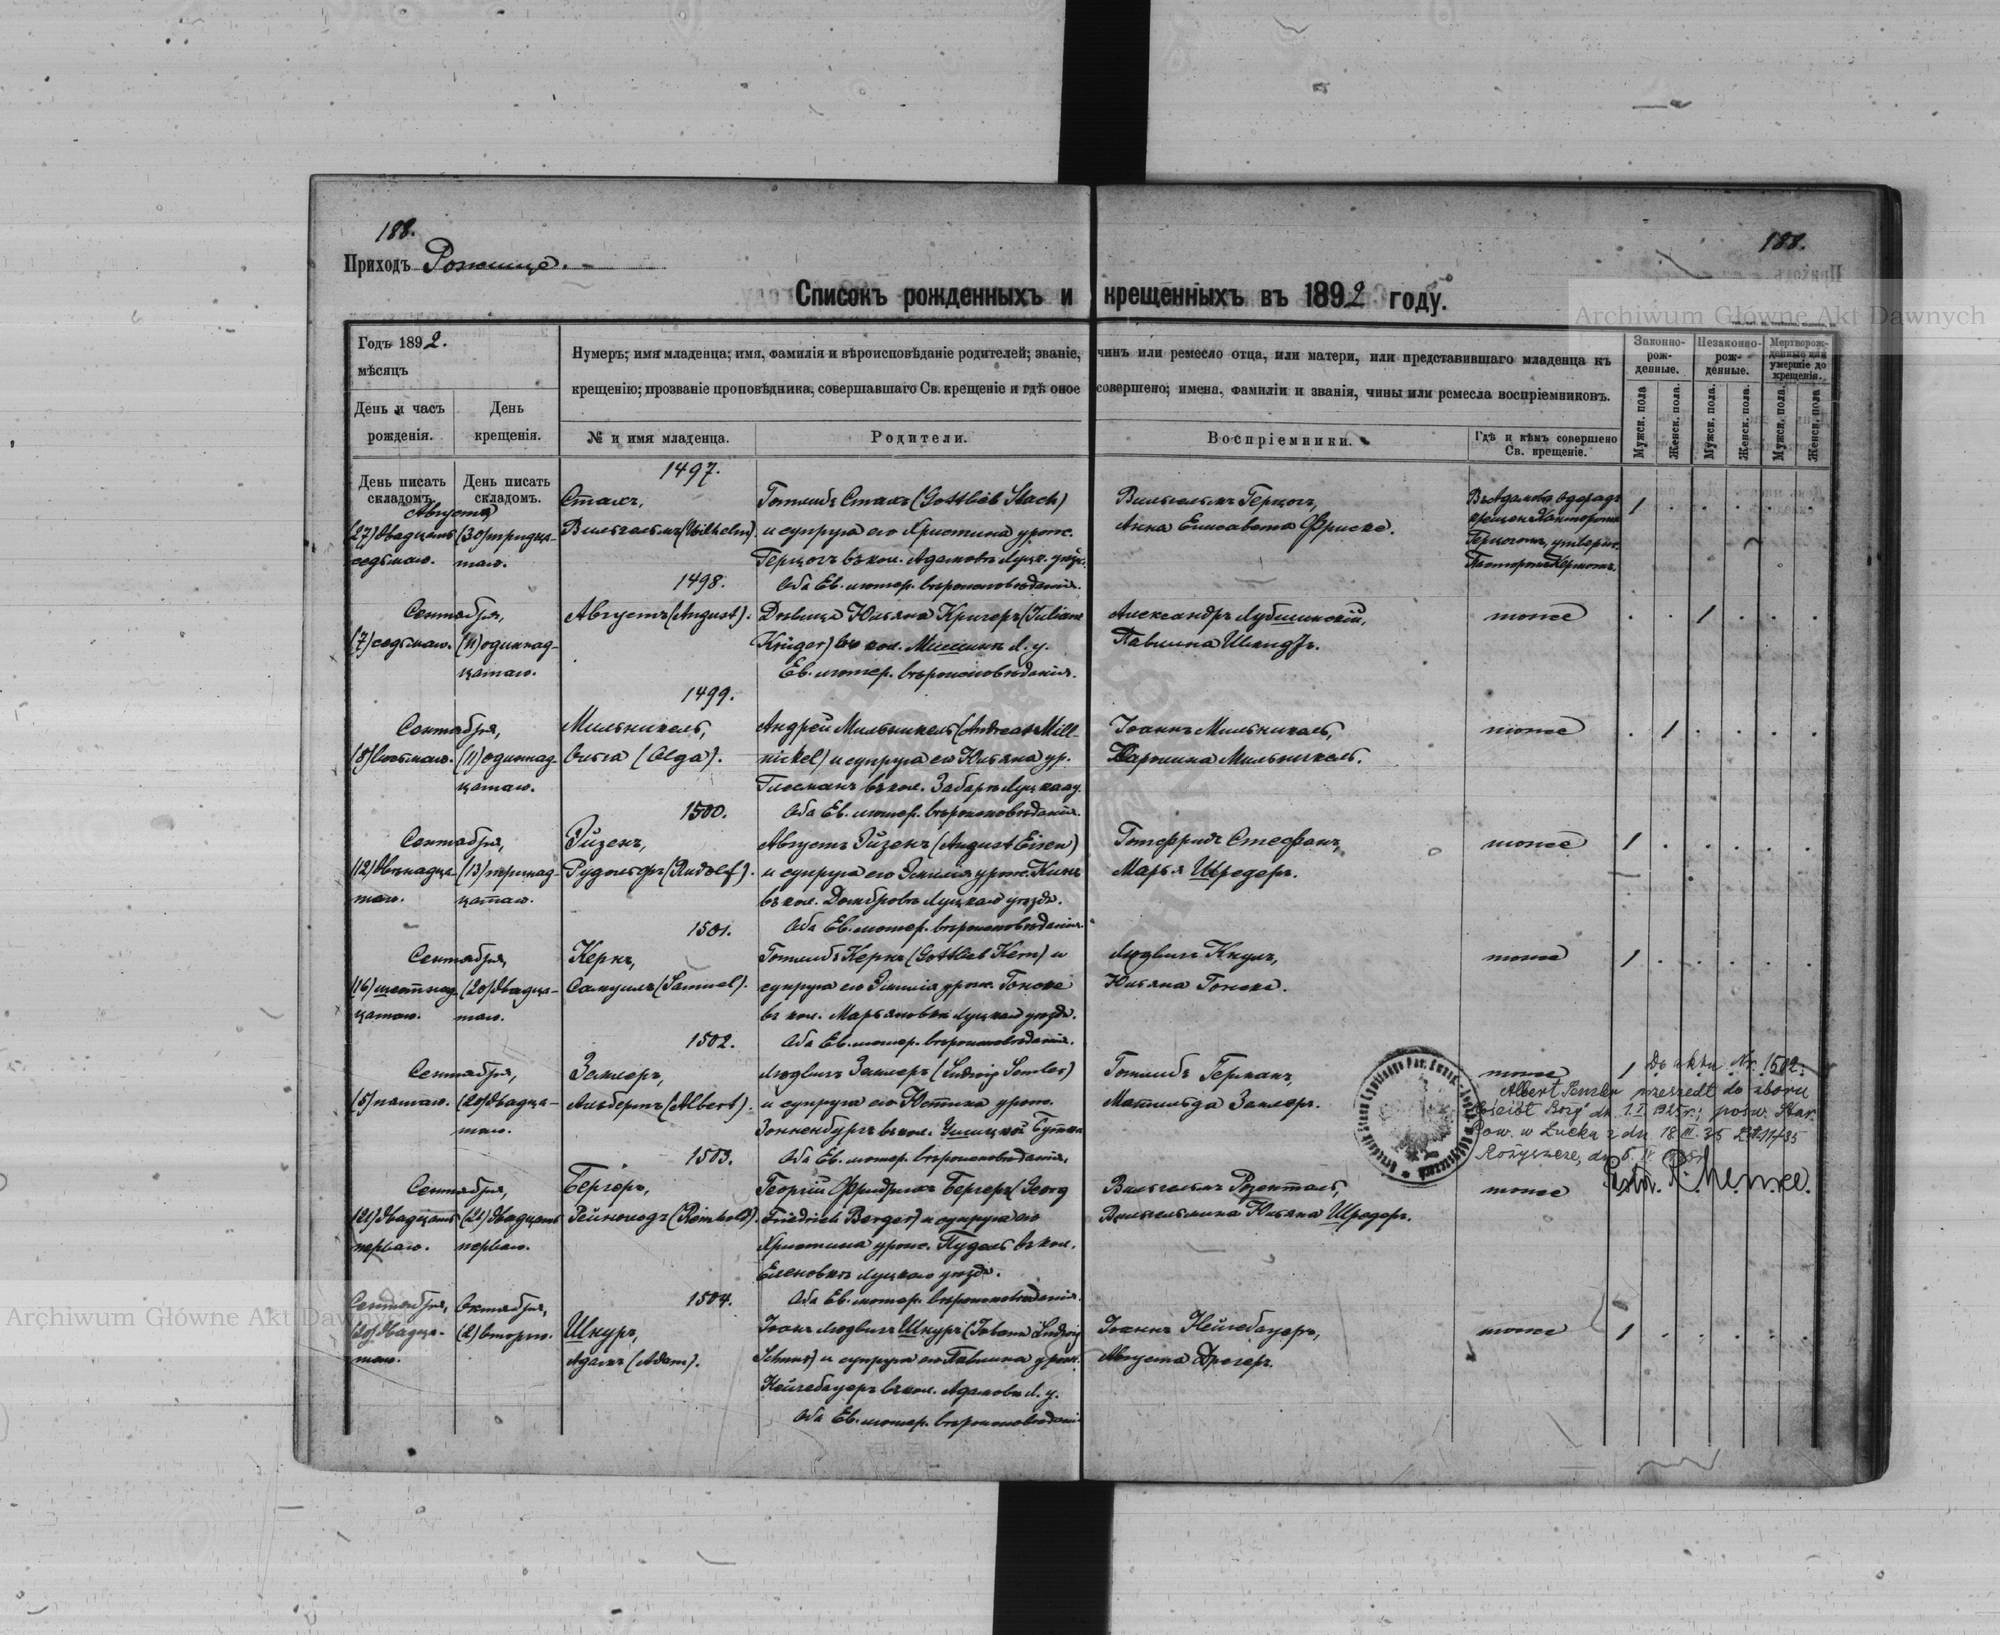 188.
188.
Приходъ Рожище.
Списокъ рожденныхъ и крещенныхъ въ 1892 году.
Годъ 1892.
мѣсяцъ
Нумеръ; имя младенца; имя, фамилія и вѣроисповѣданіе родителей; званіе, чинъ или ремесло отца, или матери, или представившаго младенца къ
крещенію; прозваніе проповѣдника, совершавшаго Св. крещеніе и гдѣ оное совершено; имена, фамиліи и званія, чины или ремесла воспріемниковъ.
Законно-
рож-
денные.
Незаконно-
рож-
денные.
Мертворож-
денные или
умершіе до
крещенія.
День и часъ
рожденія.
День
крещенія.
№ и имя младенца.
Родители.
Воспріемники.
Гдѣ и кѣмъ совершено
Св. крещеніе.
Мужск. пола
Женск. пола.
Мужск. пола.
Женск. пола.
Мужск. пола.
Женск. пола
День писать
складомъ.
День писать
складомъ.
1497.
Августа,
(27) двадцать
седьмаго.
(30) тридца-
таго.
Стахъ,
Вильгельмъ (Wilhelm).
Готлибъ Стахъ (Gottlieb Stach)
и супруга его Христина урож.
Герцогъ въ кол. Адамовъ Луцк. уѣзд.
Оба Ев. лютер. вѣроисповѣданія.
Вильгельмъ Герцогъ,
Анна Елисавета Фриске.
Герцогомъ, утверж.
1
1498.
Сентября,
(7) седьмаго.
(11) одиннад-
цатаго.
Августъ (August).
Дѣвица Юльяна Кригеръ (Juliane
Krüger) въ кол. Л. у.
Ев. лютер. вѣроисповѣданія.
Александръ Лубишинскій,
Павлина
тоже
1
1499.
Сентября,
(8) восьмаго.
(11) одиннад-
цатаго.
Мильникель,
Ольга (Olga).
Андрей Мильникель (Andreas Mill-
nickel) и супруга его Юльяна ур.
въ кол. Луцкаго у.
Оба Ев. лютер. вѣроисповѣданія.
Іоаннъ Мильникель,
Каролина Мильникель.
тоже
1
1500.
Сентября,
(12) двѣнадца-
таго.
(13) тринад-
цатаго.
Эйзенъ,
Рудольфъ (Rudolf).
Августъ Эйзенъ (August Eisen)
и супруга его Эмилія урож.
въ кол. Домбровъ Луцкаго уѣзда.
Оба Ев. лютер. вѣроисповѣданія.
Готфридъ Стефанъ,
Марья Шредеръ.
тоже
1
1501.
Сентября,
(16) шестнад-
цатаго.
(20) двадца-
таго.
Кернъ,
Самуилъ (Samuel).
Готлибъ Кернъ (Gottlieb Kern) и
супруга его Эмилія урож.
въ кол. Марьяновка Луцкаго уѣзда.
Оба Ев. лютер. вѣроисповѣданія.
Людвигъ
Юльяна
тоже
1
1502.
Сентября,
(5) пятаго.
(20) двадца-
таго.
Землеръ,
Альбертъ (Albert).
Людвигъ Землеръ (Ludwig Semler)
и супруга его Юстина урож.
Зонненбургъ въ кол.
Оба Ев. лютер. вѣроисповѣданія.
Готлибъ Германъ,
Матильда Землеръ.
тоже
1
Do aktu Nr. 1502.
Albert przeszedł do zboru
Boży dn. 1.I 1925 r.; Star.
Pow. w Łucku z dn. 18 III 35
Rożyszcze, dn.
Pastor
1503.
Сентября,
(21) двадцать
перваго.
(21) двадцать
перваго.
Бергеръ,
Рейнгольдъ (Reinhold).
Георгій Фридрихъ Бергеръ (Georg
Friedrich Berger) и супруга его
Христина урож. въ кол.
Еленовкѣ Луцкаго уѣзда.
Оба Ев. лютер. вѣроисповѣданія.
Вильгельмъ Розенталь,
Вильгельмина Юльяна Шредеръ.
тоже
1504.
Сентября,
(20) двадца-
таго.
Октября,
(2) втораго.
Шнуръ,
Адамъ (Adam).
Іоанъ Людвигъ Шнуръ (Johann Ludwig
Schnur) и супруга его Павлина урож.
Нейгебауеръ въ кол. Адамовъ Л. у.
Оба Ев. лютер. вѣроисповѣданія
Іоаннъ Нейгебауеръ,
Августа Дрегеръ.
тоже
1
Archiwum Główne Akt Dawnych
Archiwum Główne Akt Dawnych